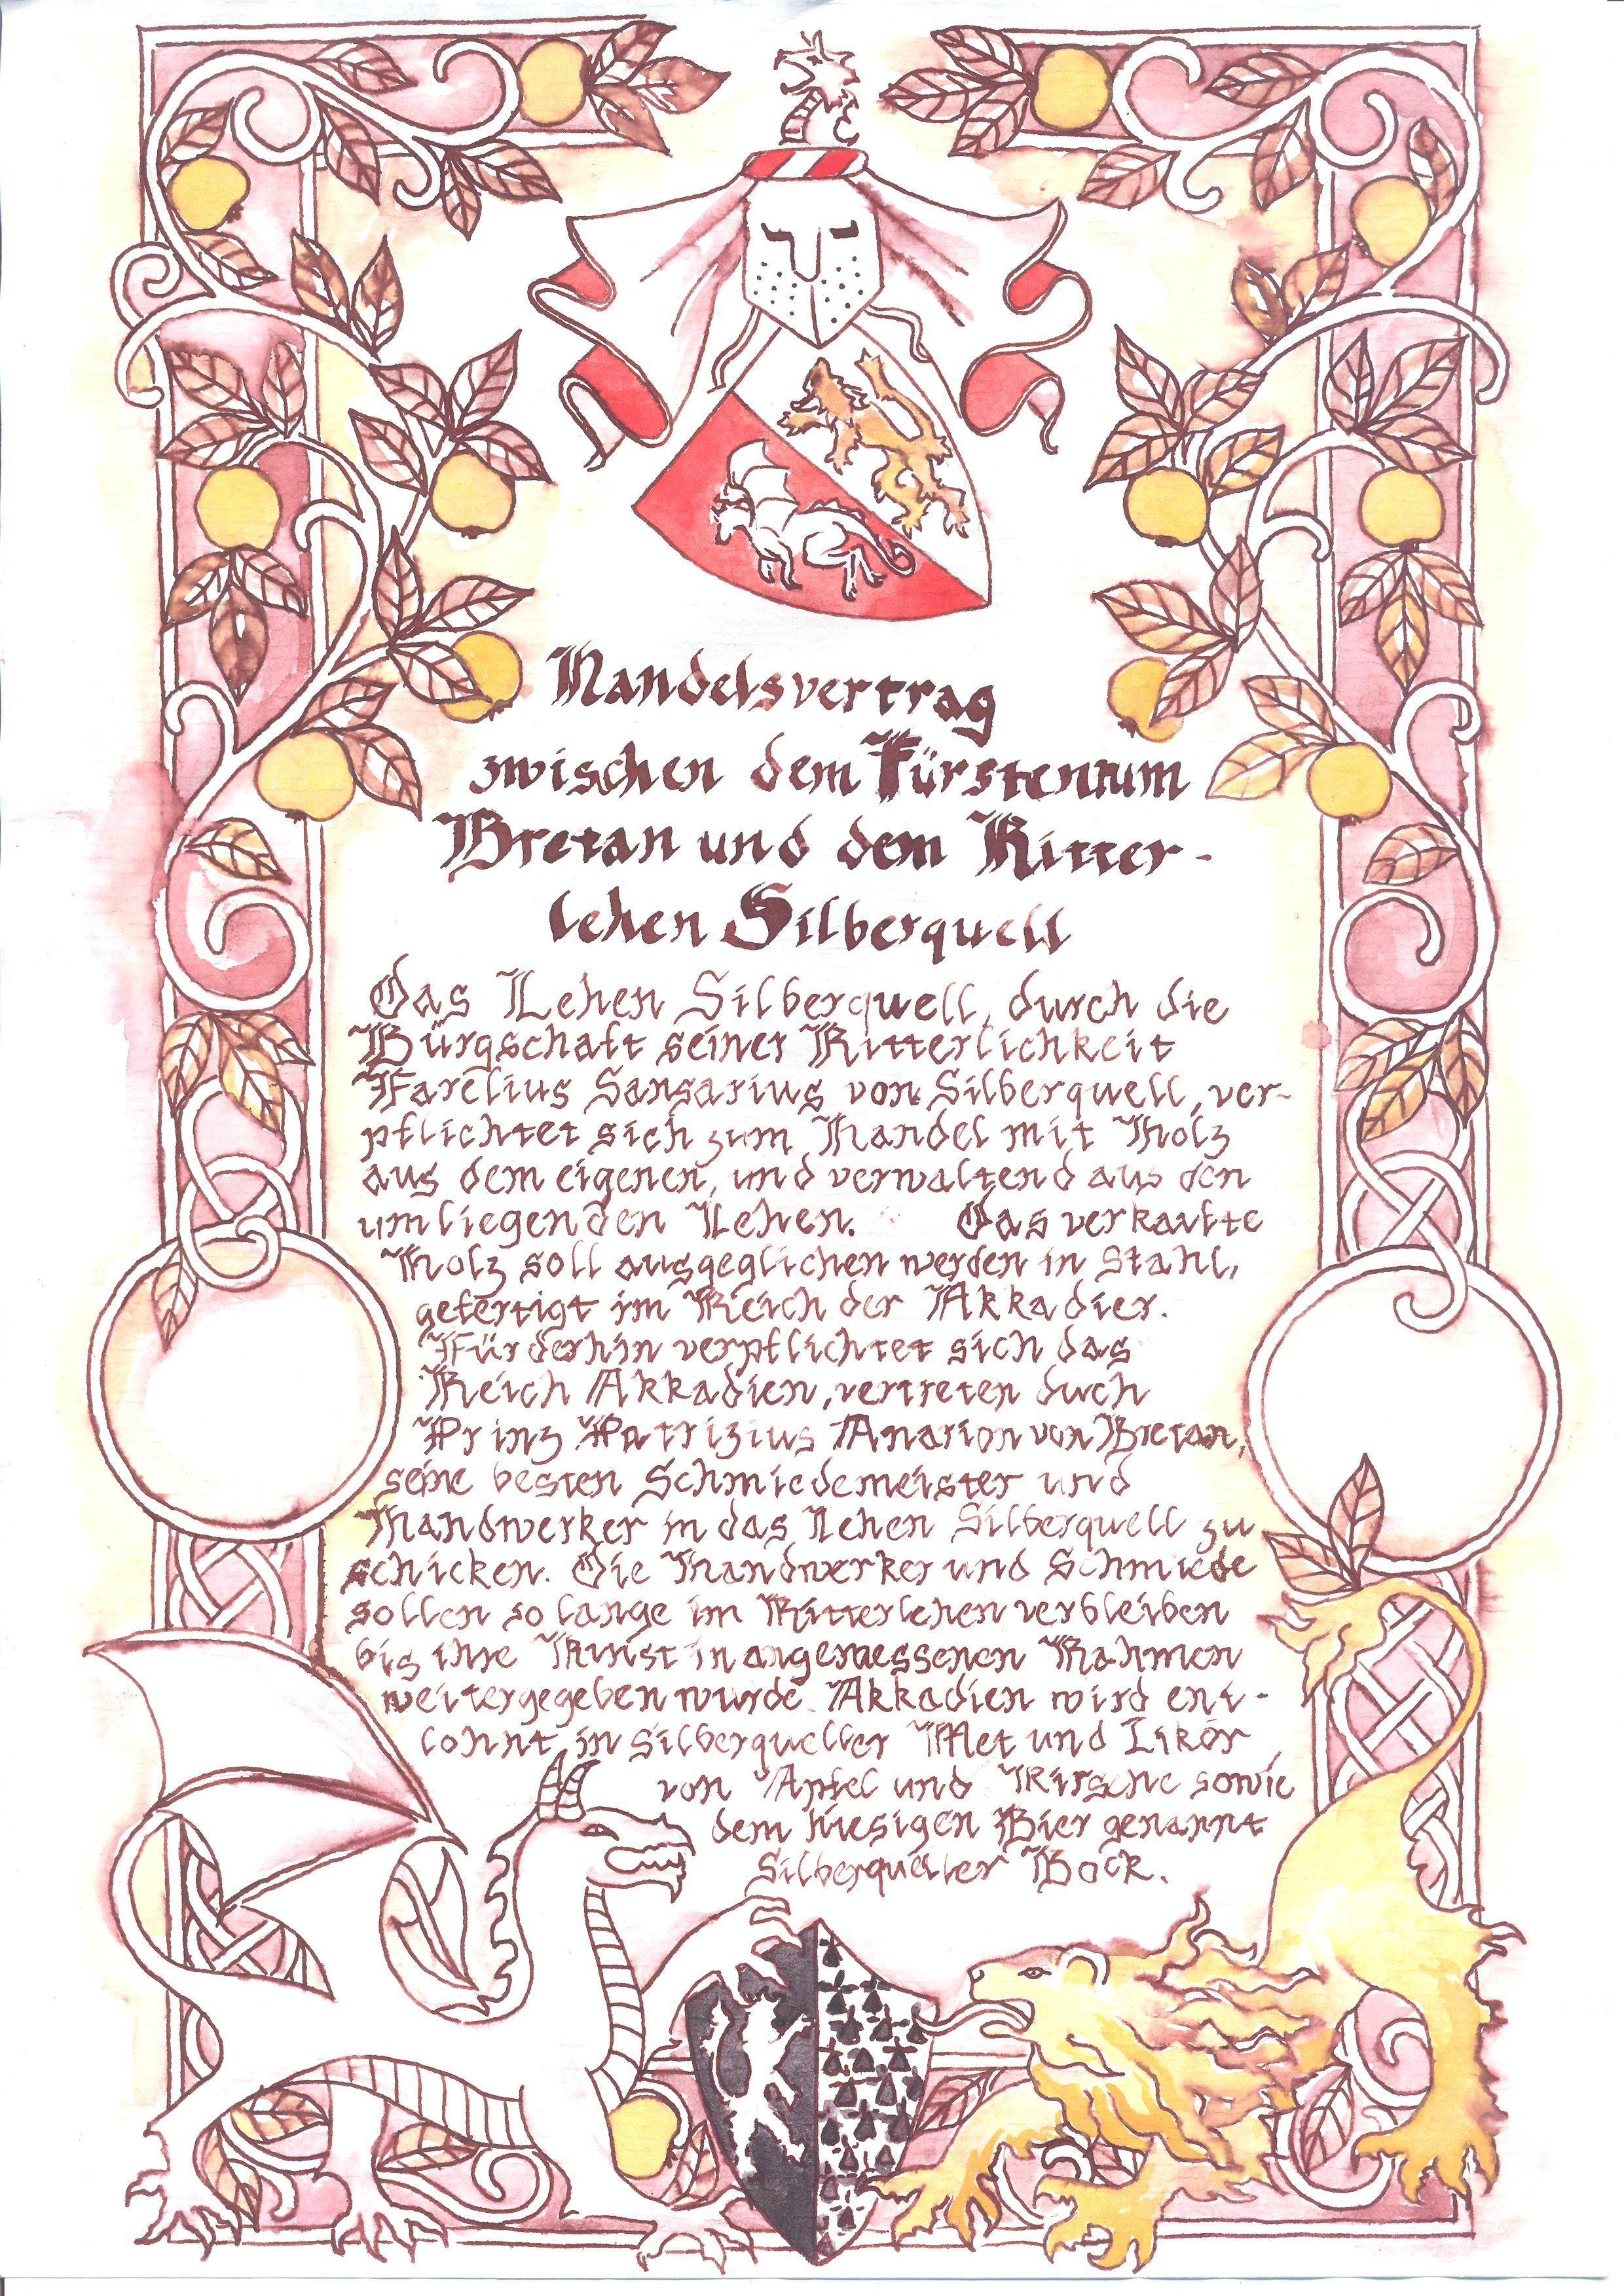 Handelsvertrag
zwischen dem Fürstentum
Bretan und dem Ritter-
lehen Silberquell
Das Lehen Silberquell, durch die
Bürgschaft seiner Ritterlichkeit
Farelius Sansarius von Silberquell, ver-
pflichtet sich zum Handel mit Holz
aus dem eigenen, und verwaltend aus den
umliegenden Lehen. Das verkaufte
Holz soll ausgeglichen werden in Stahl,
gefertigt im Reich der Akkadier.
Fürderhin verpflichtet sich das
Reich Akkadien, vertreten duch
Prinz Patrizius Anarion von Bretan,
seine besten Schmiedemeister und
Handwerker in das Lehen Silberquell zu
schicken. Die Handwerker und Schmiede
sollen so lange im Ritterlehen verbleiben
bis ihre Kunst in angemessenen Rahmen
weitergegeben wurde. Akkadien wird ent-
lohnt in Silberqueller Met und Likör
von Apfel und Kirsche sowie
dem hiesigen Bier genannt
Silberqueller Bock.